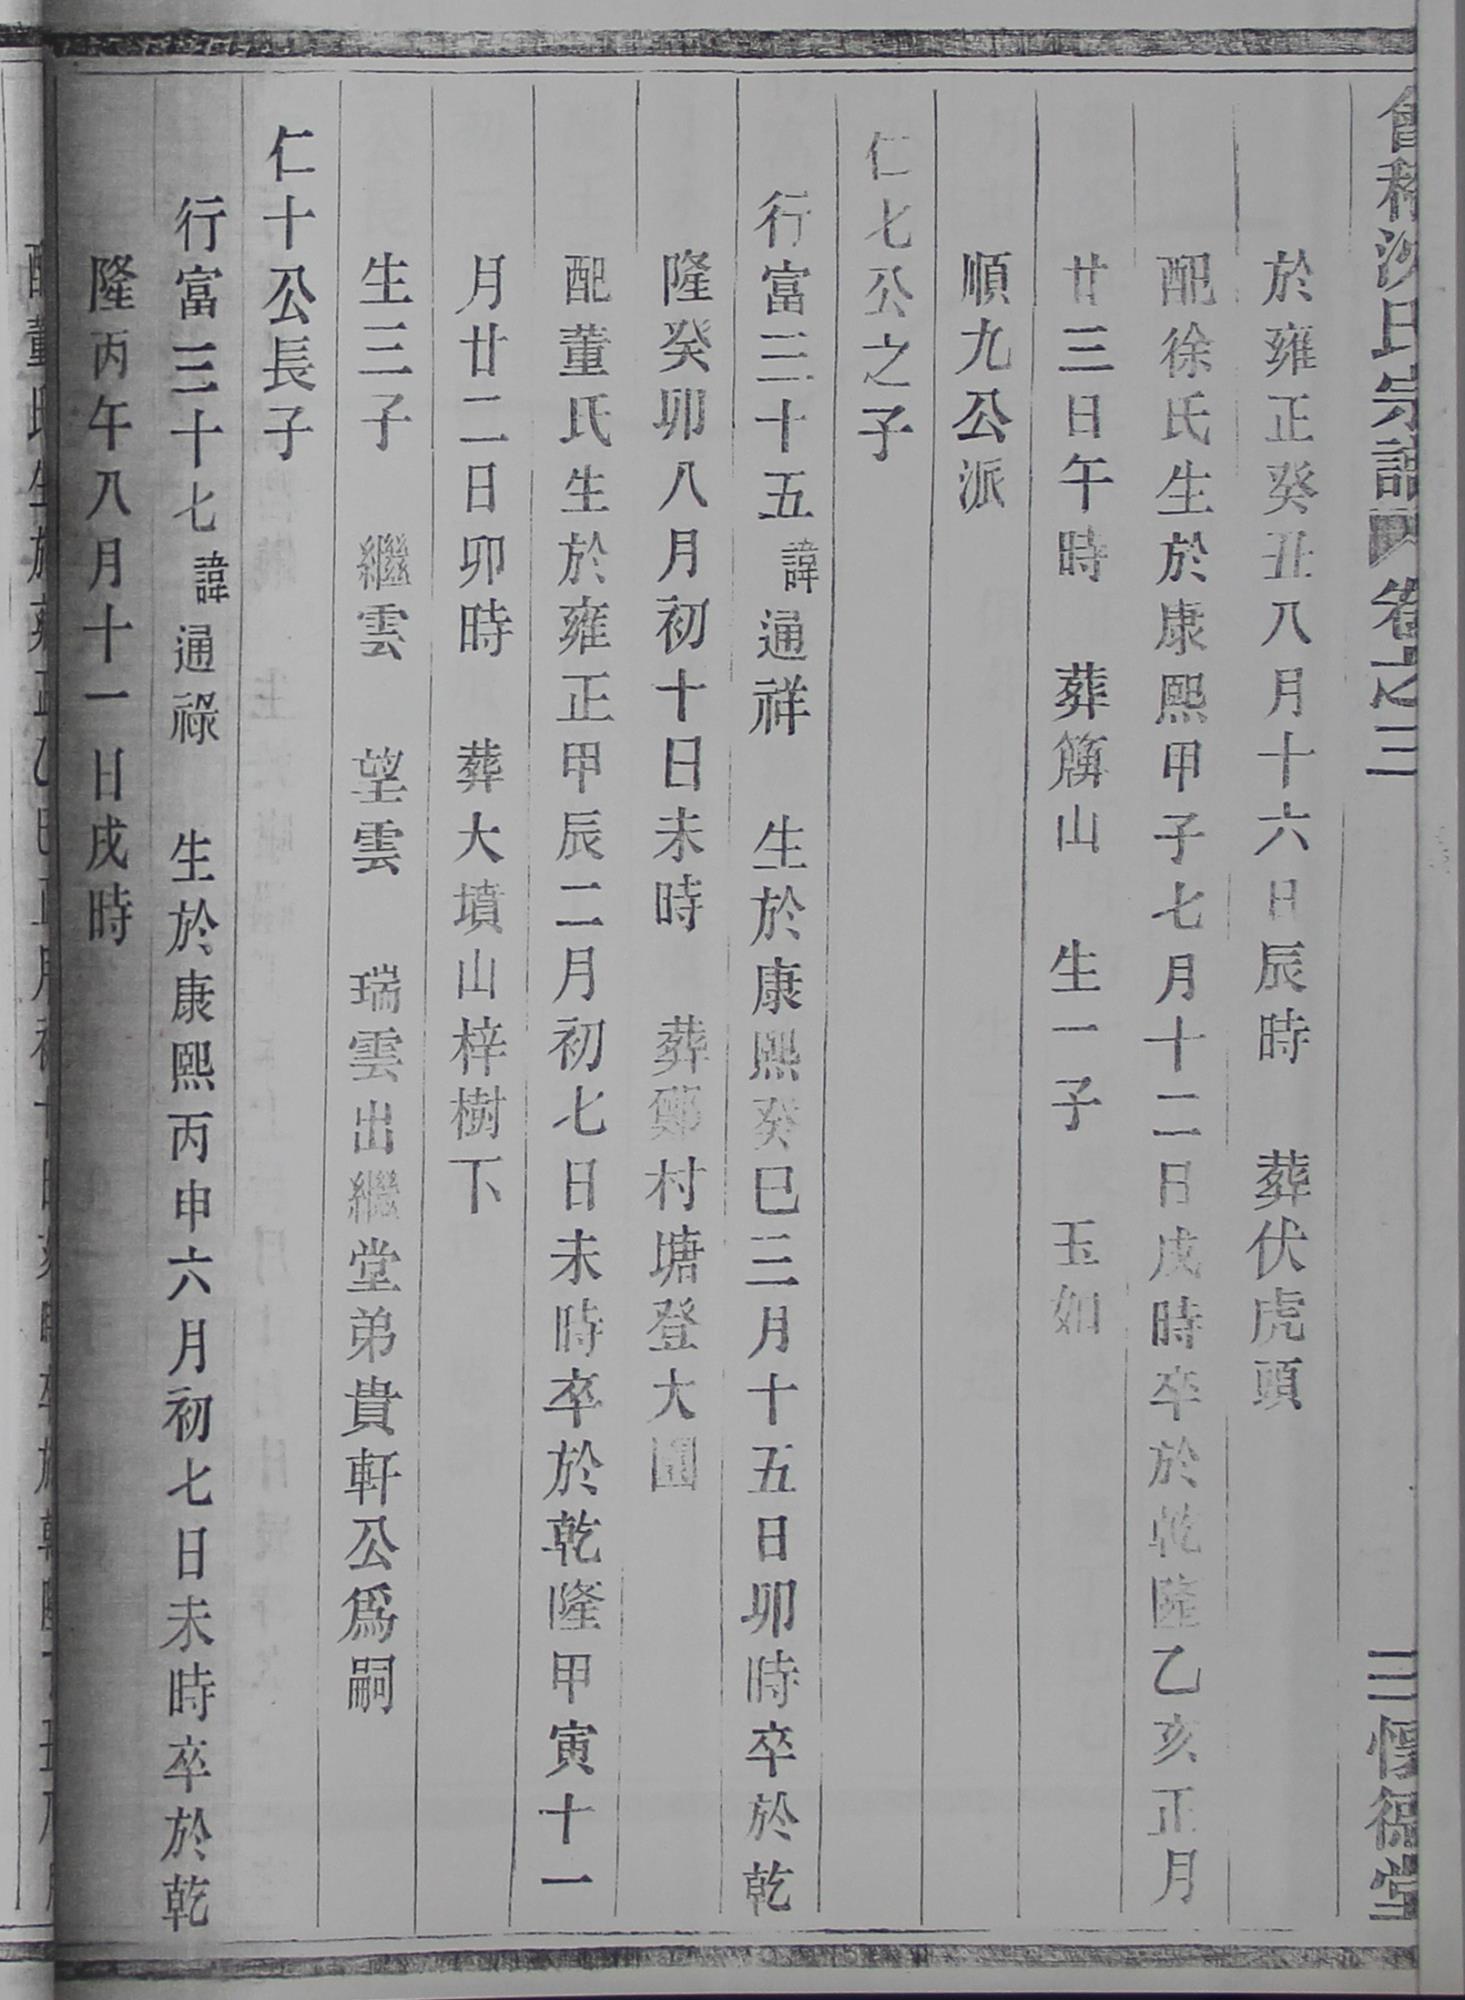 會稽沈氏宗譜 卷之三 三 懷德堂
於雍正癸丑八月十六日辰時 葬伏虎頭
配徐氏生於康熙甲子七月十二日戌時卒於乾隆乙亥正月
廿三日午時 葬籏山 生一子 玉如
順九公派
仁七公之子
行富三十五諱通祥 生於康熙癸巳三月十五日卯時卒於乾
隆癸卯八月初十日未時 葬鄭村塘登大圓
配董氏生於雍正甲辰二月初七日未時卒於乾隆甲寅十一
月廿二日卯時 葬大墳山梓樹下
生三子 繼雲 望雲 瑞雲出繼堂弟貴軒公爲嗣
仁十公長子
行富三十七諱通祿 生於康熙丙申六月初七日未時卒於乾
隆丙午八月十一日戌時